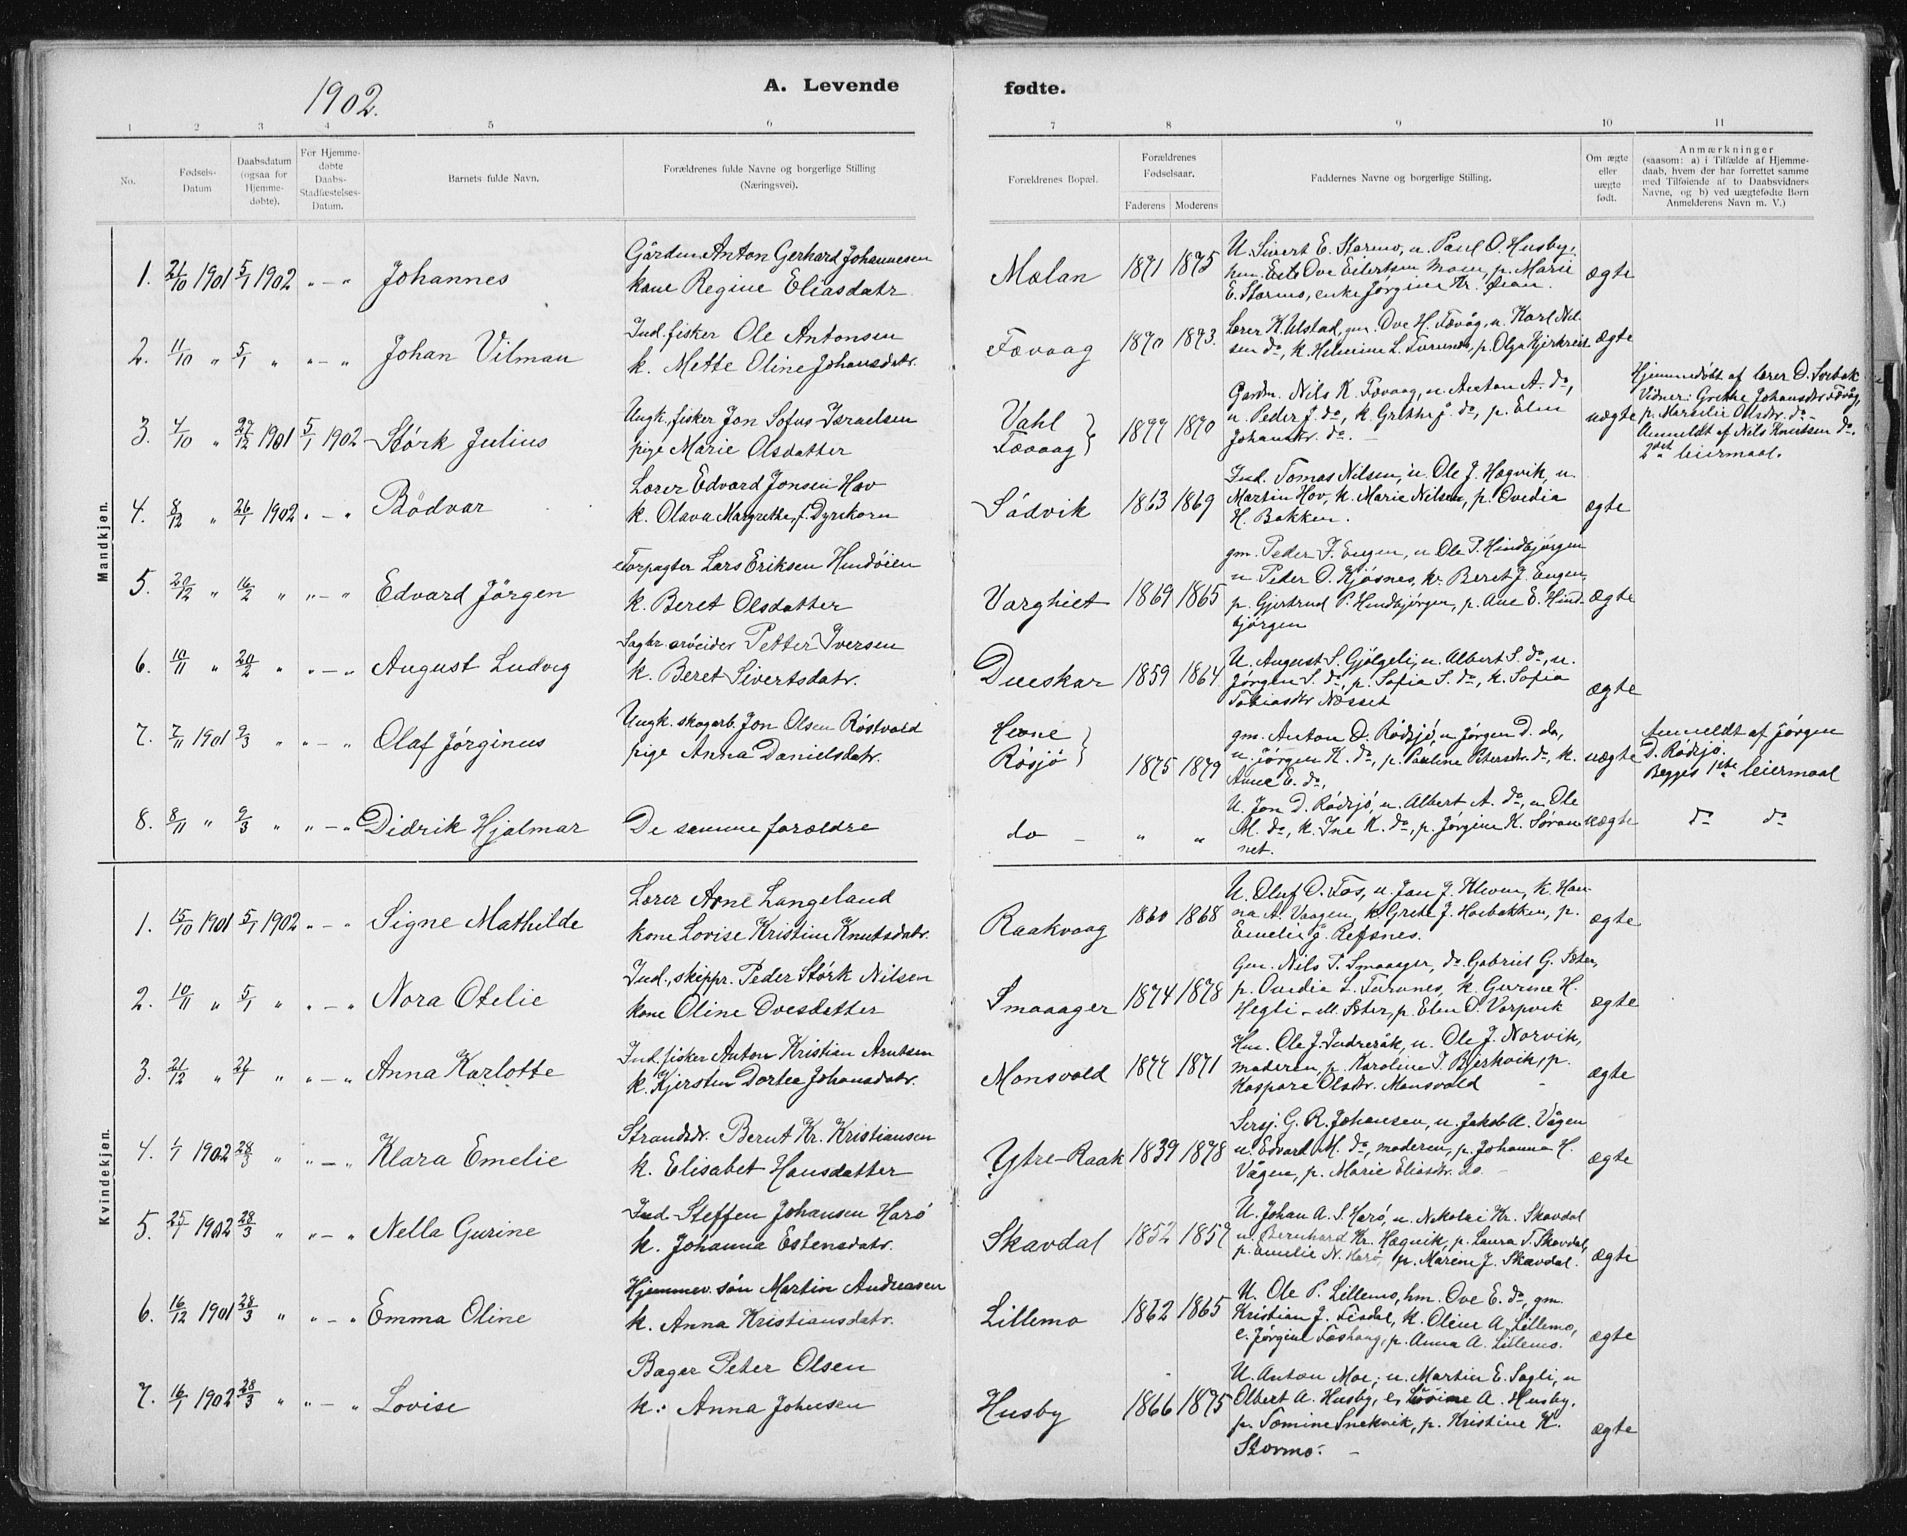 1902.
A. Levende
fødte.
1 2 3 4 5 6 7 8 9 10 11
No.
Fødsels-
Datum
Daabsdatum
(ogsaa for
Hjemme-
døbte).
For Hjemme-
døbte
Daabs-
Stadfæstelses-
Datum.
Barnets fulde Navn.
Forældrenes fulde Navne og borgerlige Stilling
(Næringsvei).
Forældrenes Bopæl.
Forældrenes
Fødselsaar.
Faderens Moderens
Faddernes Navne og borgerlige Stilling.
Om ægte
eller
uægte
født.
Anmærkninger
(saasom: a) i Tilfælde af Hjemme-
daab, hvem der har forrettet samme
med Tilføiende af to Daabsvidners
Navne, og b) ved uægtefødte Børn
Anmelderens Navn m. V.)
Mandkjøn.
1. 21/10 1901 5/1 1902 „ – „ Johannes
Gårdm. Anton Gerhard Johannesen
kone Regine Eliasdatr.
Mælan 1871 1875
U. Sivert E. Stormo, u. Paul O. Husby,
Ove Eilertsen Moen, p. Marie
E. Stormo, enke Jørgine Kr.
ægte
2. 11/10 „ 5/1 „ „ – „ Johan Vilman
Ind. fisker Ole Antonsen
k. Mette Oline Johansdatr.
Fævaag 1870 1873.
Lærer K. Ulstad, gm. Ove H. Fævåg, u. Karl Nil-
sen do, k. Helmine L. Furunes, p. Olga
ægte
3. 4/10 „ 27/12 1901 5/1 1902 Størk Julius
Ungk. fisker Jon Sofus Israelsen
pige Marie Olsdatter
Vahl
Fævaag } 1877 1870
Gardm. Nils K. Fævaag, u. Anton A. do,
u. Peder J. do, k. Grethe J. do, p. Elen
Johansdr. do. –
uægte
Hjemmedøbt af lærer O. Sorbak
Vidner: Grethe Johansdr. Fævåg,
p. Marselie Olsdr. do –
Anmeldt af Nils Knutsen do.
2det leiermaal.
4. 8/12 „ 26/1 1902 „ – „ Bødvar
Lærer Edvard Jonsen Hov
k. Olava Margrethe, f. Dyrekorn
Sødvik 1863 1869
Ind. Tomas Nilsen, u. Ole J. Hagvik, u.
Martin Hov, k. Marie Nilsen, p. Ovedia
H. Bakken.
ægte
5. 20/12 „ 16/2 „ „ – „ Edvard Jørgen
Forpagter Lars Eriksen Hindøien
k. Beret Olsdatter
Varghiet 1869 1865
gm. Peder J. Engen, u. Ole P. Hindbjørgen
u. Peder O. Kjøsnes, k. Beret J. Engen,
p. Gjertrud P. Hindbjørgen, p. Ane E. Hind-
bjørgen
ægte
6. 10/11 „ 20/2 „ „ – „ August Ludvig
Sagbr. arbeider Petter Iversen
k. Beret Sivertsdatr.
Dueskar 1859 1864.
U. August S. Gjølgeli, u. Albert S. do, u.
Jørgen S. do, p. Sofia S. do, k. Sofia
Tobiasdr. Næsset
ægte
7. 7/11 1901 9/3 „ „ – „ Olaf Jørginus
Ungk. skogarb. Jon Olsen Røstvold
pige Anna Danielsdatr.
Hevne
Røsjø } 1875 1879
gm. Anton D. Rødsjø, u. Jørgen D. do,
u. Jørgen K. do, p. Pauline Petersdr. do, k.
Anne E. do,
uægte
Anmeldt af Jørgen
D. Rødsjø.
Begges 1ste leiermaal
8. 8/11 „ 9/3 „ „ – „ Didrik Hjalmar
De samme forældre
do – „ „
U. Jon D. Rødsjø, u. Albert A. do, u. Ole
M. do, k. Ine K. do, p. Jørgine K. Søran-
net.
uægte
do do
Kvindekjøn.
1. 15/10 1901 5/1 1902 „ – „ Signe Mathilde
Lærer Arne Langeland
kone Lovise Kristine Knutsdatr.
Raakvaag 1860 1868
U. Oluf O. Fos, u. Jan J. Kleven, k. Han-
na A. Vaagen, k. Grete J. Hosbakken, p.
Emelie J. Refsnes.
ægte
2. 10/11 „ 5/1 „ „ – „ Nora Otelie
Ind., skippr. Peder Størk Nilsen
kone Oline Ovesdatter
Smaaager 1874 1878
Gm. Nils P. Smaager, do Gabriel G. Sæter,
p. Ovedia L. Furunes, k. Gurine H.
Hegli – M. Sæter, p. Elen O. Vorpvik
ægte
3. 21/12 „ 26/1 „ „ – „ Anna Karlotte
Ind. fisker Anton Kristian Arntsen
k. Kjersten Dortea Johansdatr.
Monsvold 1877 1871
Hm. Ole J. Indreråk, u. Ole J. Norvik,
moderen, p. Karoline J. Bjerkvik, p.
Kaspara Olsdr. Monsvold –
ægte
4. 1/1 1902 28/3 „ „ – „ Klara Emelie
Strandsdr. Bernt Kr. Kristiansen
k. Elisabet Hansdatter
Ytre-Raak 1839 1878
Sersj. G. R. Johansen, u. Jakob A. Vågen
u. Edvard M. do, moderen, p. Johanna H.
Vågen, p. Marie Eliasdr. do –
ægte
5. 25/1 1902 28/3 „ „ – „ Nella Gurine
Ind. Steffen Johansen Harø
k. Johanna Estensdatr.
Skavdal 1852 1859
U. Johan A. S. Harø, u. Nikolai Kr. Skavdal
u. Bernhard Kr. Hagvik, p. Laura T. Skavdal,
p. Emelie N. Harø, p. Marine J. Skavdal.
ægte
6. 16/12 1901 28/3 „ „ – „ Emma Oline
Hjemmev. søn Martin Andreasen
k. Anna Kristiansdatr.
Lillemo 1862 1865
U. Ole P. Lillemo, hm. Ove E. do, gm.
Kristian J. Fisdal, k. Oline A. Lillemo,
e. Jørgine Foshaug, p. Anna A. Lillemo.
ægte
7. 16/1 1902 28/3 „ „ – „ Lovise
Bager Peter Olsen
k. Anna Johnsen
Husby 1866 1875
U. Anton Moe, u. Martin E. Sagli, u
Olbert A. Husby, e. A. Husby,
p. Tomine Snekvik, p. Kristine K.
Stormo. –
ægte